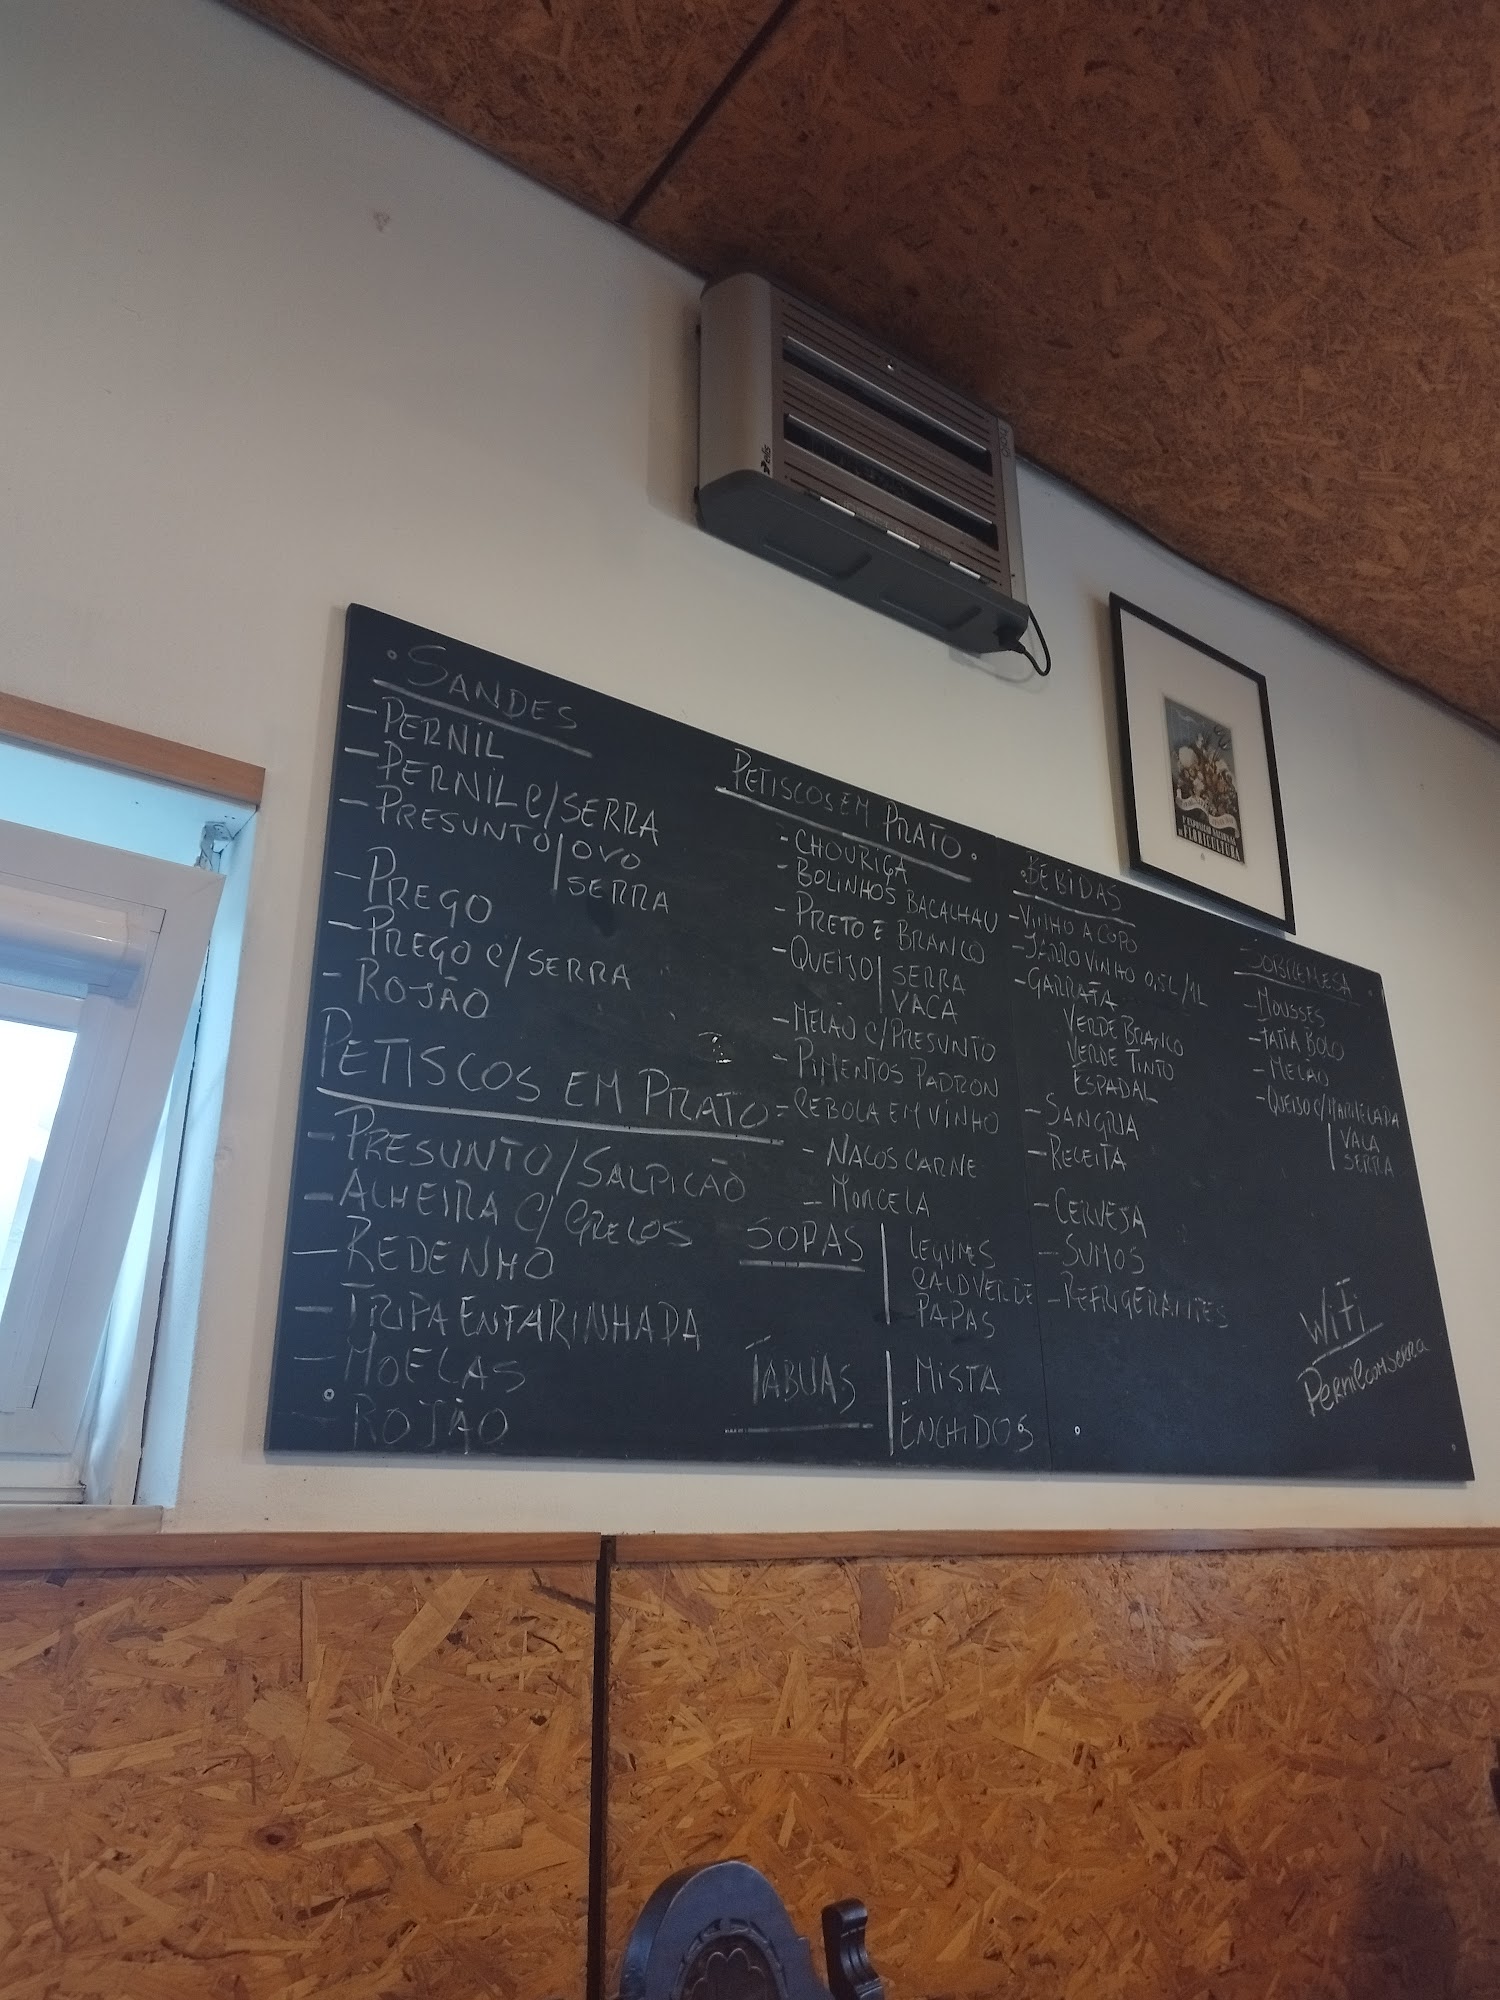 SANDES
- PERNIL
- PERNIL C/SERRA
- PRESUNTO/OVO
SERRA
- PREGO
- PREGO C/SERRA
- ROJÃO
PETISCOS EM PRATO
- PRESUNTO/SALPICÃO
- ALHEIRA C/GRELOS
- REDENHO
- TRIPA ENFARINHADA
- MOELAS
- ROJÃO
PETISCOS EM PRATO
- CHOURIÇA
- BOLINHOS BACALHAU
- PRETO E BRANCO
- QUEIJO | SERRA
VACA
- MELÃO C/PRESUNTO
- PIMENTOS PADRON
- CEBOLA EM VINHO
- NACOS CARNE
- MORCELA
SOPAS | LEGUMES
CALDVERDE
PAPAS
TÁBUAS | MISTA
ENCHIDOS
BEBIDAS
- VINHO A COPO
- JARRO VINHO 0,5L/1L
- GARRAFA
VERDE BRANCO
VERDE TINTO
ESPADAL
- SANGRIA
- RECEITA
- CERVEJA
- SUMOS
- REFRIGERANTES
SOBREMESA
- MOUSSES
- FATIA BOLO
- MELÃO
- QUEIJO C/MARMELADA
| VACA
SERRA
WiFi
Pernilcomserra
1ª EXPOSIÇÃO NACIONAL
DE FLORICULTURA